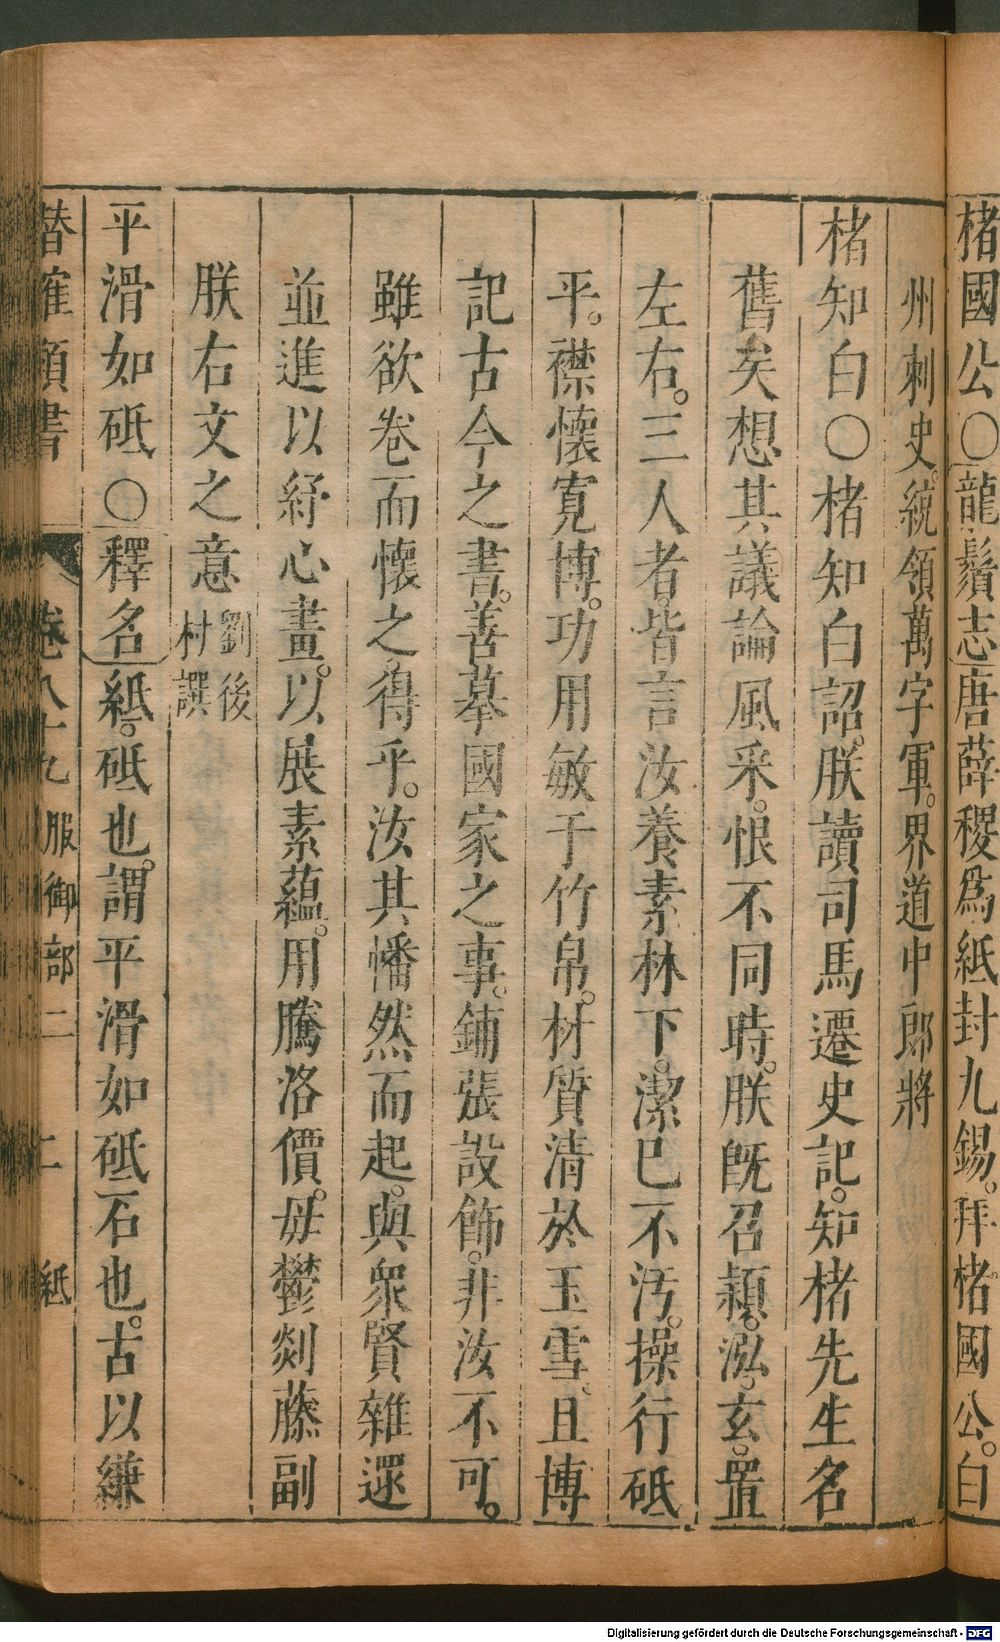 楮國公○龍鬚志唐薛稷爲紙封九錫。拜楮國公。白
州刺史。統領萬字軍。界道中郎將
楮知白○楮知白詔。朕讀司馬遷史記。知楮先生名
舊矣想其議論風采。恨不同時。朕旣召穎。泓。玄。置
左右。三人者。皆言汝養素林下。潔巳不汚。操行砥
平。襟懷寬博。功用敏于竹帛。材質清於玉雪。且博
記古今之書。善摹國家之事。鋪張設飾。非汝不可。
雖欲卷而懷之得乎。汝其幡然而起。與衆賢雜遝
並進以紓心畫。以展素蘊。用騰洛價。毋鬱剡藤副
朕右文之意劉後村譔
平滑如砥○釋名紙。砥也。謂平滑如砥石也。古以縑
潛確類書 卷八十九 服御部二 二 紙
Digitalisierung gefördert durch die Deutsche Forschungsgemeinschaft - DFG